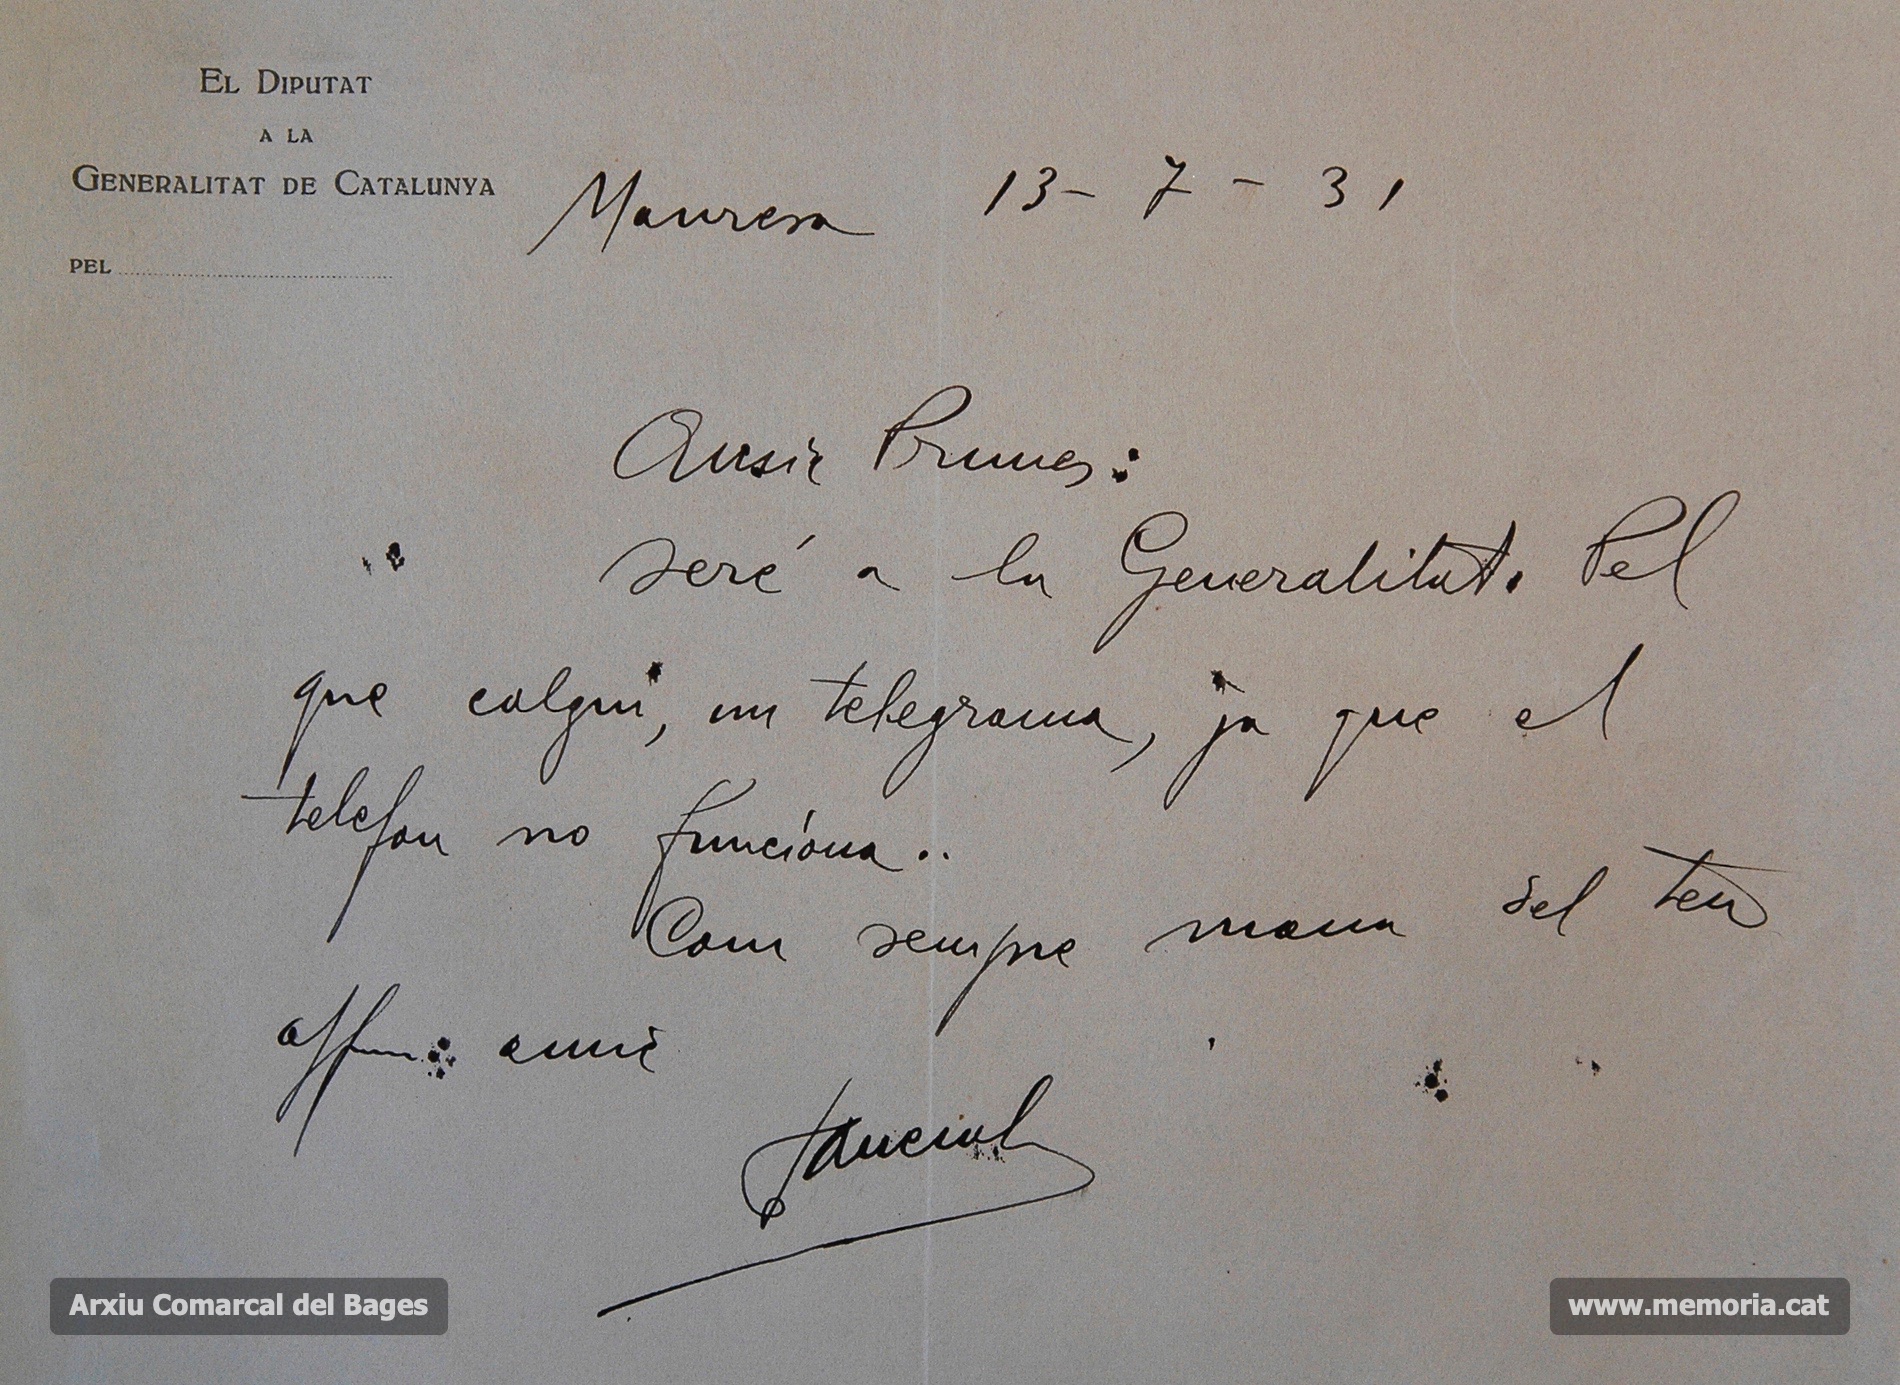 EL DIPUTAT
A LA
GENERALITAT DE CATALUNYA
PEL
Manresa 13-7-31
Amic Prunes:
seré a la Generalitat. Pel
que calgui, un telegrama, ja que el
telefon no funciona..
Com sempre mana del teu
affm: amic
Arxiu Comarcal del Bages
www.memoria.cat